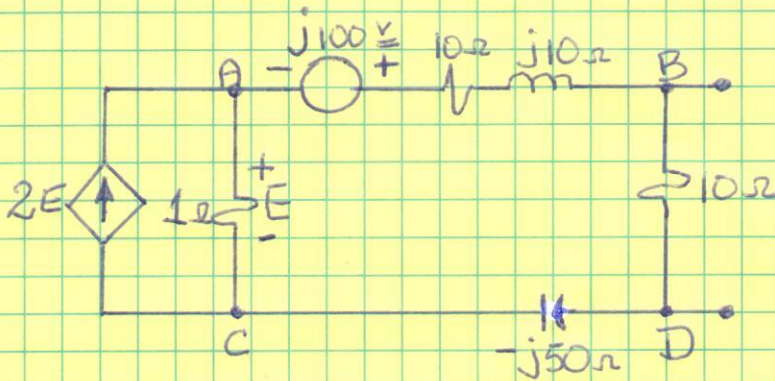 j100 v
- +
10Ω
j10Ω
A
B
2E
1Ω
+
E
-
10Ω
C
-j50Ω
D